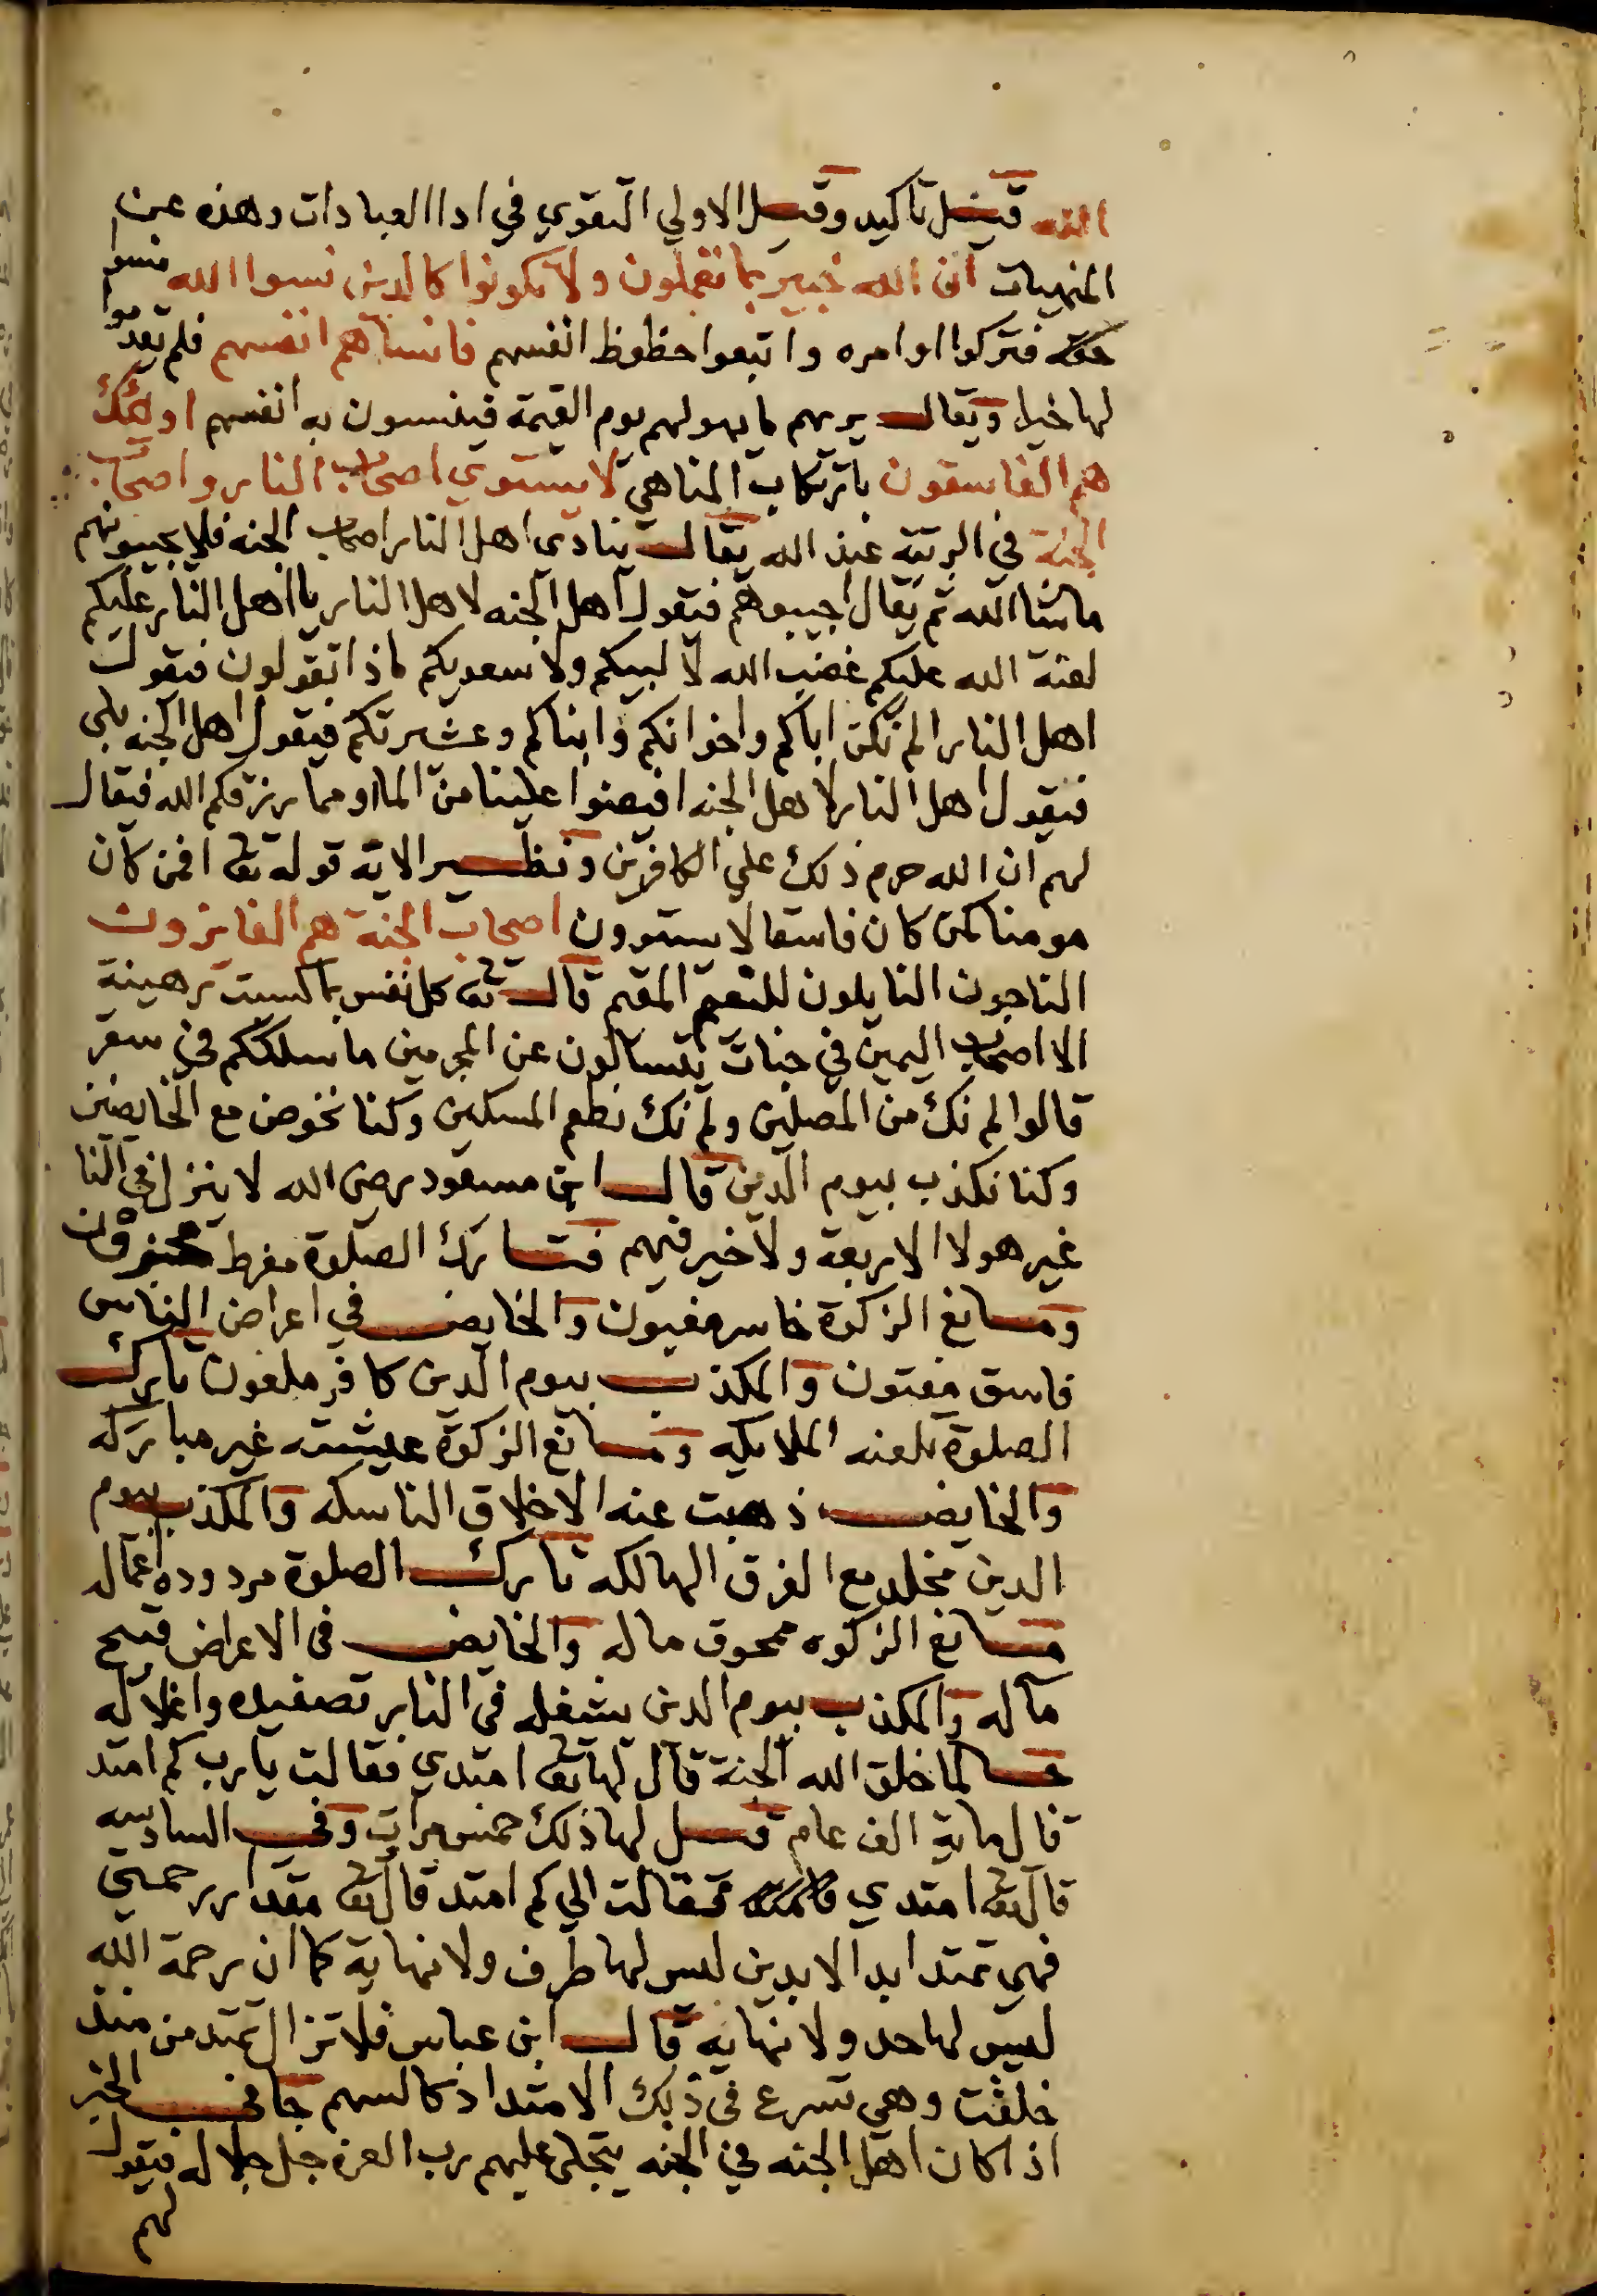 الله قيل تاكيد وقيل الاولي التقوي في ادا العبادات وهذه عن
المنهيات ان الله خبير بما تعملون ولا تكونوا كالدين نسوا الله نسوا
حقه فتركوا اوامره واتبعوا حظوظ انفسهم فانساهم انفسهم فلم يقدموا
لها خيرا ويقال يريهم ما يهولهم يوم القيمة فينسون به انفسهم اولئك
هم الفاسقون بارتكاب المناهي لا يستوي اصحاب النار واصحاب
الجنة في الرتبة عند الله يقال ينادي اهل النار اصحاب الجنه فلا يجيبونهم
ماشا الله ثم يقال اجيبوهم فتقول اهل الجنه لاهل النار يا اهل النار عليكم
لعنة الله عليكم غضب الله لا لبيكم ولا سعديكم ماذا تقولون فيقول
اهل النار الم نكن اباكم واخوانكم وابناكم وعشيرتكم فيقول اهل الجنه بلي
فيقول اهل النار لاهل الجنه افيضوا علينا من الما او مما رزقكم الله فيقال
لهم ان الله حرم ذلك علي الكافرين ونظير الاية قوله تع افمن كان
مومنا كمن كان فاسقا لا يستوون اصحاب الجنة هم الفايزون
الناجون النايلون للنعيم المقيم قال تع كل نفس بما كسبت رهينة
الا اصحاب اليمين في جنات يتسالون عن المجرمين ما سلككم في سقر
قالوا لم نك من المصلين ولم نك نطعم المسكين وكنا نخوض مع الخايضين
وكنا نكذب بيوم الدين قال ابن مسعود رضى الله لا ينزل في النا
غير هولا الاربعة ولا خير فيهم فتارك الصلوة مفرط
ومانع الزكوة خاسر مغبون والخايض في اعراض الناس
فاسق مفتون والمكذب بيوم الدين كافر ملعون تارك
الصلوة تلعنه الملايكه ومانع الزكوة عيشته غير مباركه
والخايض ذهبت عنه الاخلاق الناسكه والمكذب بيوم
الدين مخلد مع الفرق الهالكه تارك الصلوة مردوده اعماله
مانع الزكوه ممحوق ماله والخايض في الاعراض قبيح
مآله والمكذب بيوم الدين يشغله في النار تصفيده واغلاله
لما خلق الله الجنة قال لها تع امتدي فقالت يارب كم امتد
قال ماية الف عام قيل لها ذلك خمس مرات وفي السادسه
قال تع امتدي فقالت الي كم امتد قال تع مقدار رحمتي
فهي تمتد ابد الابدين ليس لها طرف ولا نهاية كما ان رحمة الله
ليس لها حد ولا نهايه قال ابن عباس فلا تزال تمتد من منذ
خلقت وهي تسرع في ذلك الامتداد كالسهم جا في الخبر
اذا كان اهل الجنه في الجنه يتجلى عليهم رب العزة جل جلاله فيقول
لهم